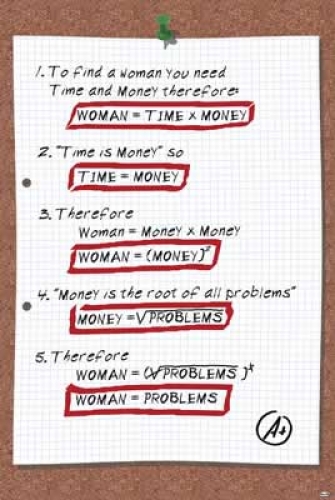 1. To find a woman you need
Time and Money therefore:
WOMAN = TIME x MONEY
2. "Time is Money" so
TIME = MONEY
3. Therefore
Woman = Money x Money
WOMAN = (MONEY)²
4. "Money is the root of all problems"
MONEY = √PROBLEMS
5. Therefore
WOMAN = (√PROBLEMS)²
WOMAN = PROBLEMS
A+